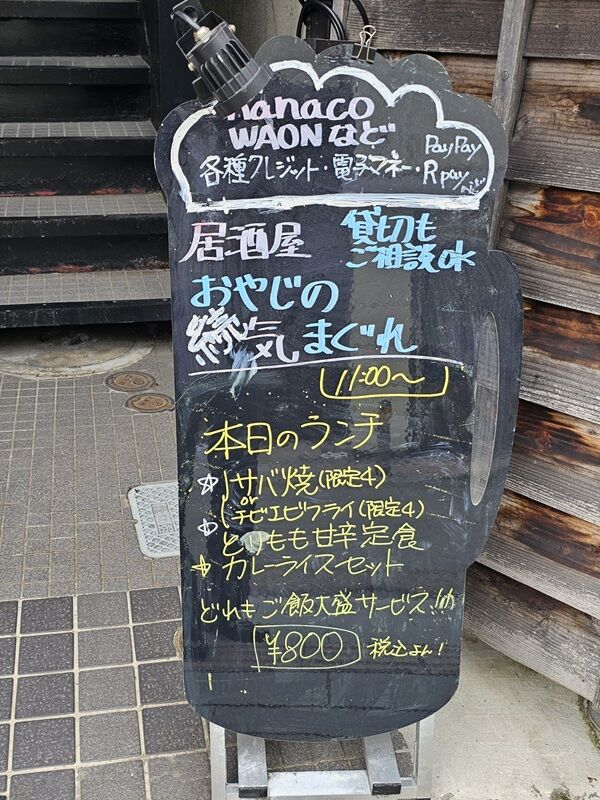 nanaco
WAONなど
PayPay
各種クレジット・電子マネー・Rpay など
居酒屋
貸切も
ご相談ok
おやじの
続 気まぐれ
11:00〜
本日のランチ
☆ サバ焼(限定4)
or
チビエビフライ(限定4)
☆ とりもも甘辛定食
☆ カレーライスセット
どれもご飯大盛サービス!!
¥800 税込よん!